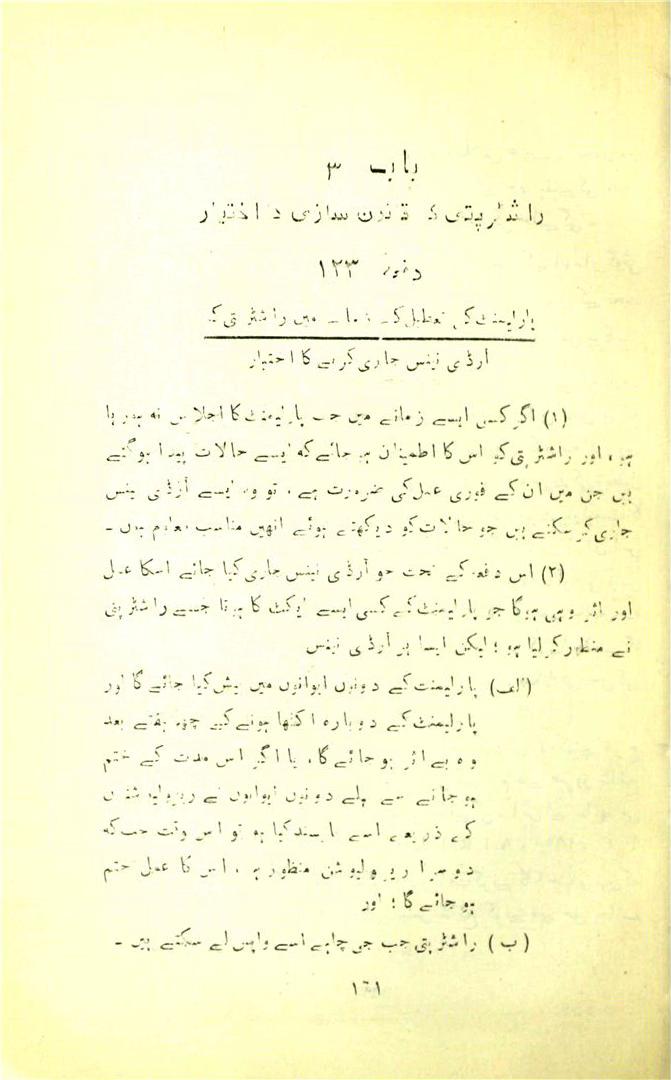 باب ۳
راشٹرپتی کا قانون سازی کا اختیار
دفعہ ۱۲۳
پارلیمنٹ کی تعطیل کے زمانے میں راشٹرپتی کا
آرڈی نینس جاری کرنے کا اختیار
(۱) اگر کسی ایسے زمانے میں جب پارلیمنٹ کا اجلاس نہ ہو رہا
ہو، اور راشٹرپتی کو اس کا اطمینان ہو جائے کہ ایسے حالات پیدا ہوگئے
ہیں جن میں ان کے فوری عمل کی ضرورت ہے، تو وہ ایسے آرڈی نینس
جاری کر سکتے ہیں جو حالات کو دیکھتے ہوئے انھیں مناسب معلوم ہوں ۔
(۲) اس دفعہ کے تحت جو آرڈی نینس جاری کیا جائے اسکا عمل
اور اثر وہی ہوگا جو پارلیمنٹ کے کسی ایسے ایکٹ کا ہوتا جسے راشٹرپتی
نے منظور کر لیا ہو ؛ لیکن ایسا ہر آرڈی نینس
(الف) پارلیمنٹ کے دونوں ایوانوں میں پیش کیا جائے گا اور
پارلیمنٹ کے دوبارہ اکٹھا ہونے کے چھ ہفتے بعد
وہ بے اثر ہو جائے گا، یا اگر اس مدت کے ختم
ہو جانے سے پہلے دونوں ایوانوں نے ریزولیوشنوں
کے ذریعے اسے ناپسند کیا ہو تو اس وقت جب کہ
دوسرا ریزولیوشن منظور ہو، اس کا عمل ختم
ہو جائے گا ؛ اور
(ب) راشٹرپتی جب جی چاہے اسے واپس لے سکتے ہیں ۔
۱۶۱